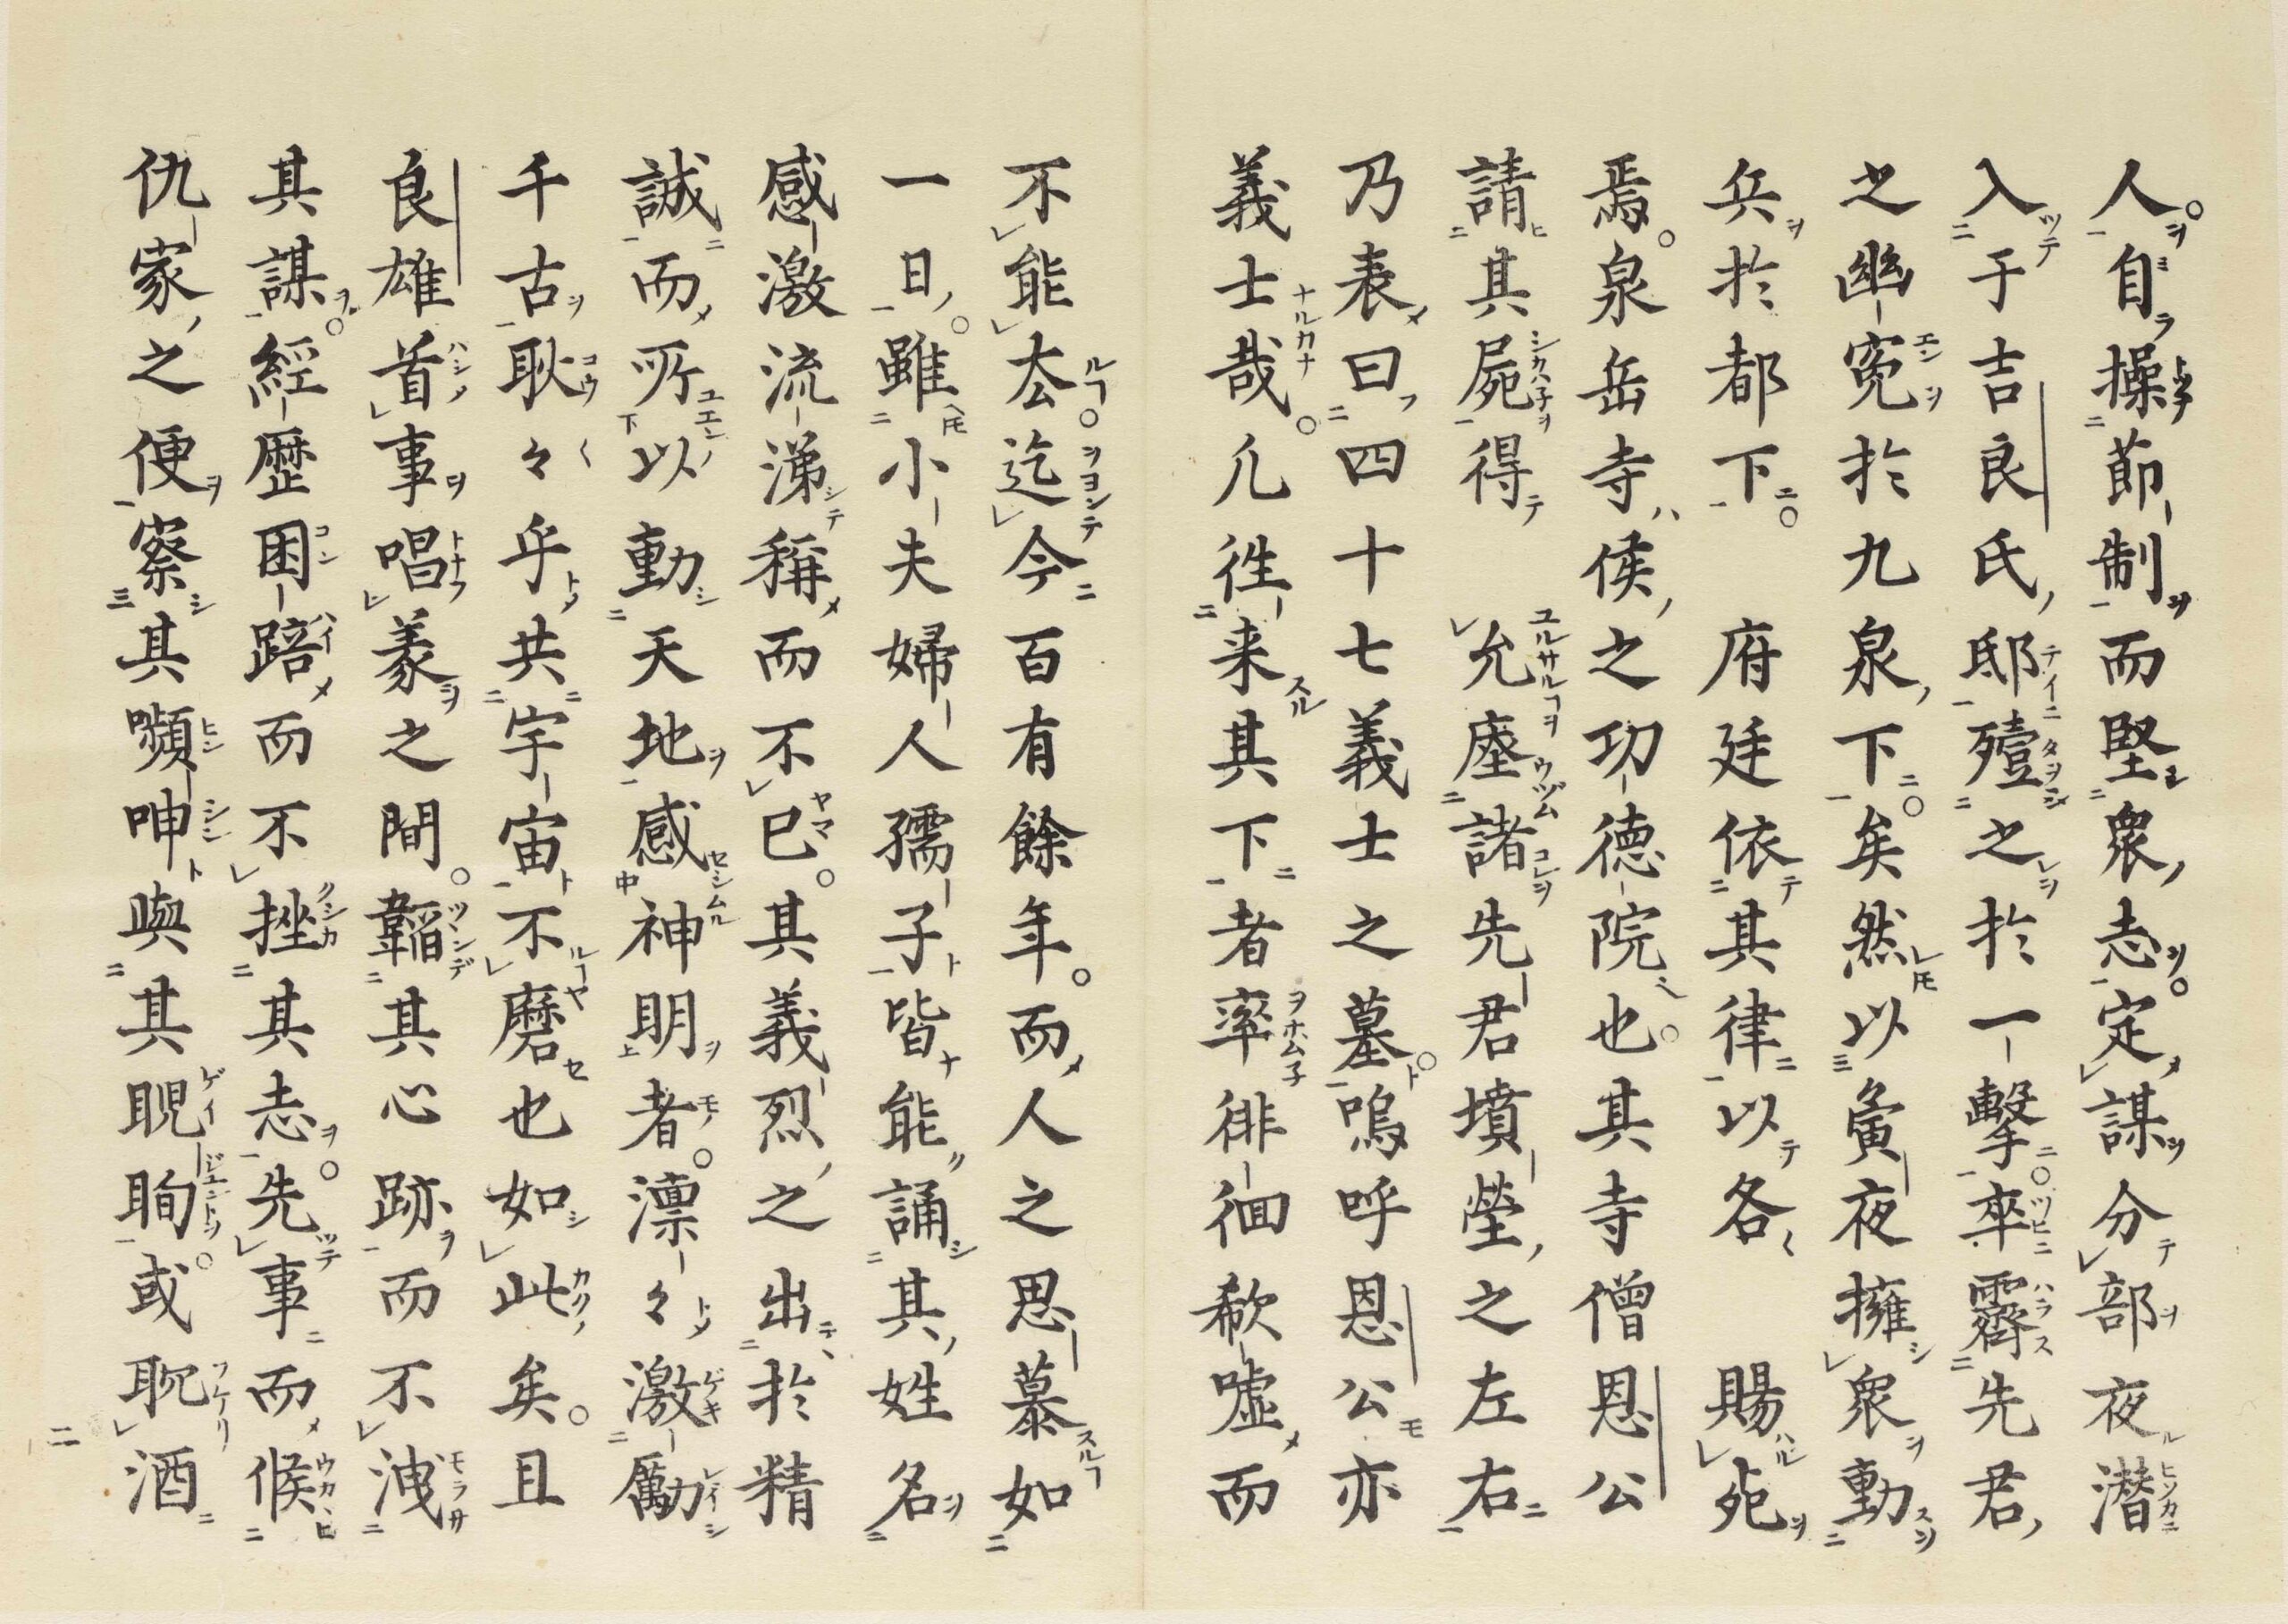 人自操節制而堅衆志定謀分部夜潜
入于吉良氏邸殪之於一擊卒霽先君
之幽冤於九泉下矣然以夤夜擁衆動
兵於都下府廷依其律以各賜死
焉泉岳寺侯之功德院也其寺僧恩公
請其屍得允塟諸先君墳塋之左右
乃表曰四十七義士之墓嗚呼恩公亦
義士哉凡徃来其下者率徘徊欷嘘而
不能厺迄今百有餘年而人之思慕如
一日雖小夫婦人孺子皆能誦其姓名
感激流涕稱而不已其義烈之出於精
誠而所以動天地感神明者凛々激勵
千古耿々乎共宇宙不磨也如此矣且
良雄首事唱義之間韜其心跡而不洩
其謀經歷困踣而不挫其志先事而候
仇家之便察其嚬呻與其睨眴或耽酒